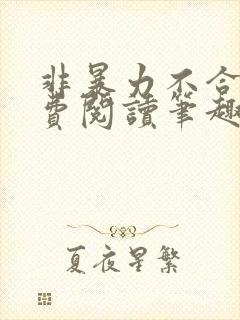 非暴力不合
費閱讀筆趣
夏夜星繁